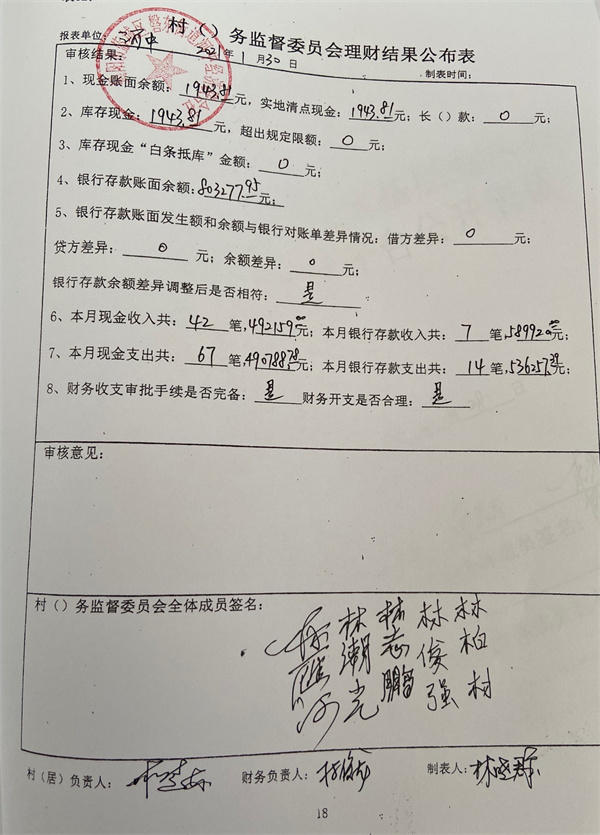 村（ ）务监督委员会理财结果公布表
报表单位：
审核结果： 2021年1月30日 制表时间：
1、现金账面余额：1943.81元，实地清点现金：1943.81元；长（）款：0元；
2、库存现金：1943.81元，超出规定限额：0元；
3、库存现金“白条抵库”金额：0元；
4、银行存款账面余额：803277.95元；
5、银行存款账面发生额和余额与银行对账单差异情况：借方差异：0元；
贷方差异：0元；余额差异：0元；
银行存款余额差异调整后是否相符：是
6、本月现金收入共：42笔，492159.00元；本月银行存款收入共：7笔，589920.00元；
7、本月现金支出共：67笔，490788.78元；本月银行存款支出共：14笔，536257.38元；
8、财务收支审批手续是否完备：是 财务开支是否合理：是
审核意见：
村（）务监督委员会全体成员签名：
林潮光 林志鹏 林俊强 林柏村
村（居）负责人： 财务负责人： 制表人：林
18